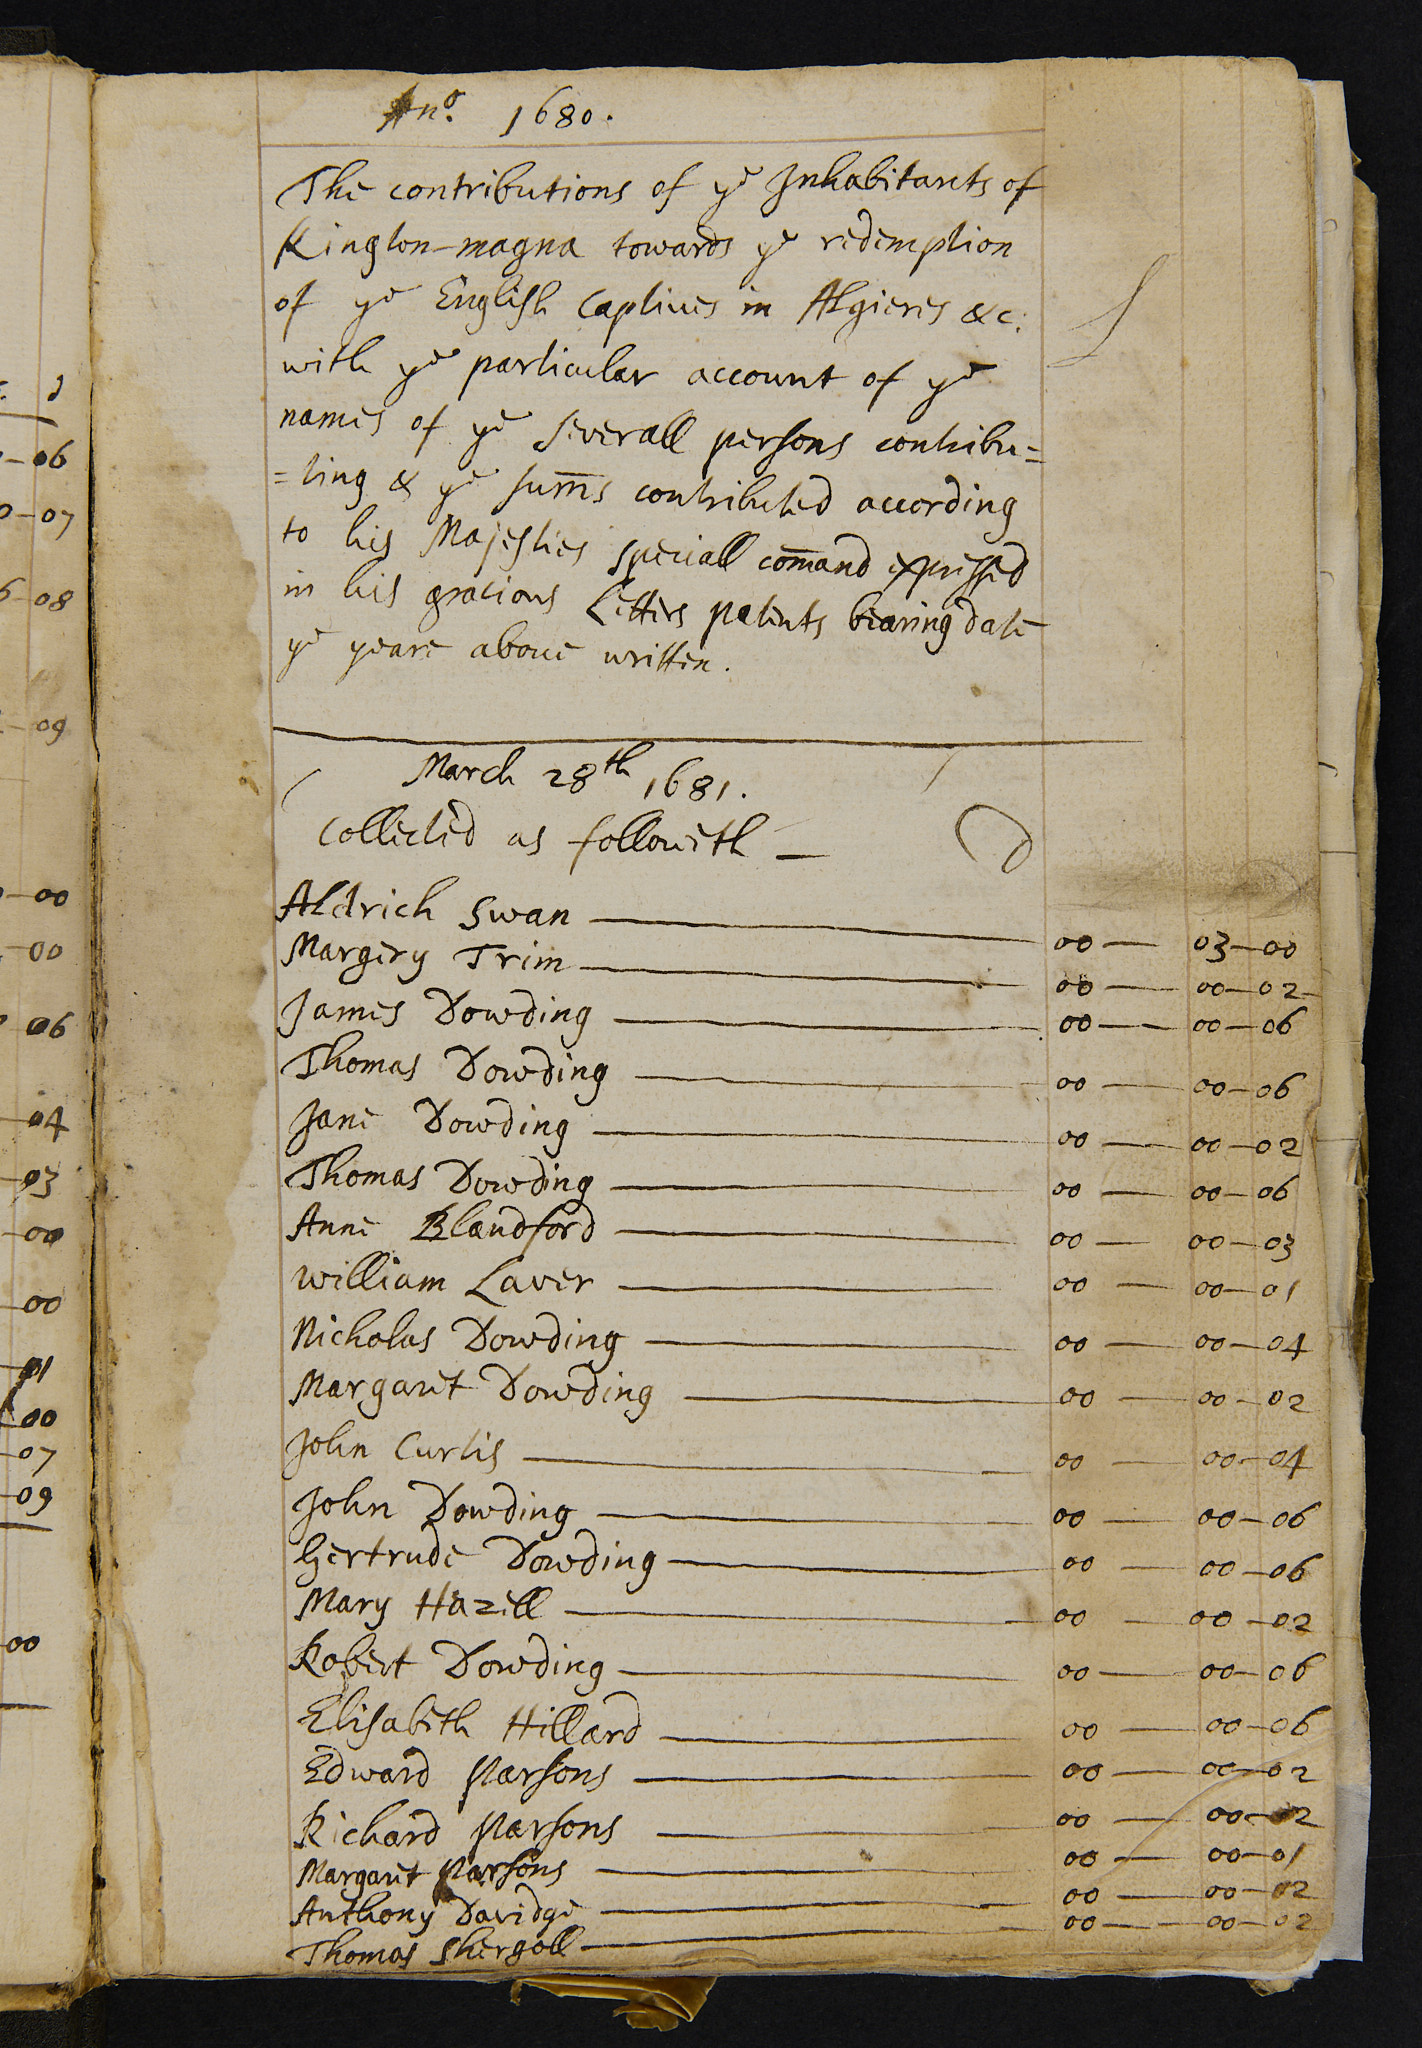 Ano. 1680.
The contributions of ye Inhabitants of
Kington-magna towards ye redemption
of ye English Captives in Algieres &c:
with ye particular account of ye
names of ye severall persons contribu=
=ting & ye sum̄s contributed according
to his Majesties speciall com̄and expressed
in his gratious Letters patents bearing date
ye yeare above written.
March 28th 1681.
Collected as followeth —
Aldrich Swan — 00 — 03 — 00
Margery Trim — 00 — 00 — 02
James Dowding — 00 — 00 — 06
Thomas Dowding — 00 — 00 — 06
Jane Dowding — 00 — 00 — 02
Thomas Dowding — 00 — 00 — 06
Anne Blandford — 00 — 00 — 03
William Laver — 00 — 00 — 01
Nicholas Dowding — 00 — 00 — 04
Margaret Dowding — 00 — 00 — 02
John Curtis — 00 — 00 — 04
John Dowding — 00 — 00 — 06
Gertrude Dowding — 00 — 00 — 06
Mary Hazell — 00 — 00 — 02
Robert Dowding — 00 — 00 — 06
Elisabeth Hillard — 00 — 00 — 06
Edward Parsons — 00 — 00 — 02
Richard Parsons — 00 — 00 — 02
Margaret Parsons — 00 — 00 — 01
Anthony Davidge — 00 — 00 — 02
Thomas Shergoll — 00 — 00 — 02
06
07
08
09
00
00
06
04
03
00
00
01
00
07
09
00